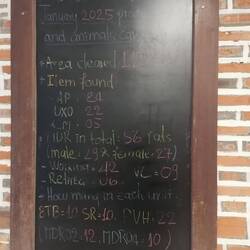 January 2025 pro
and animals can
- Area cleared 11
- Item found
AP = 84
UXO = 22
= 05
- MDR in total = 56 rats
(male = 29 & female = 27)
- = 42 VC = 09
- = 06
- How many in each unit
ETB = 10 SR = 10, PVH = 22
(MDR02: 12, MDR04: 10)